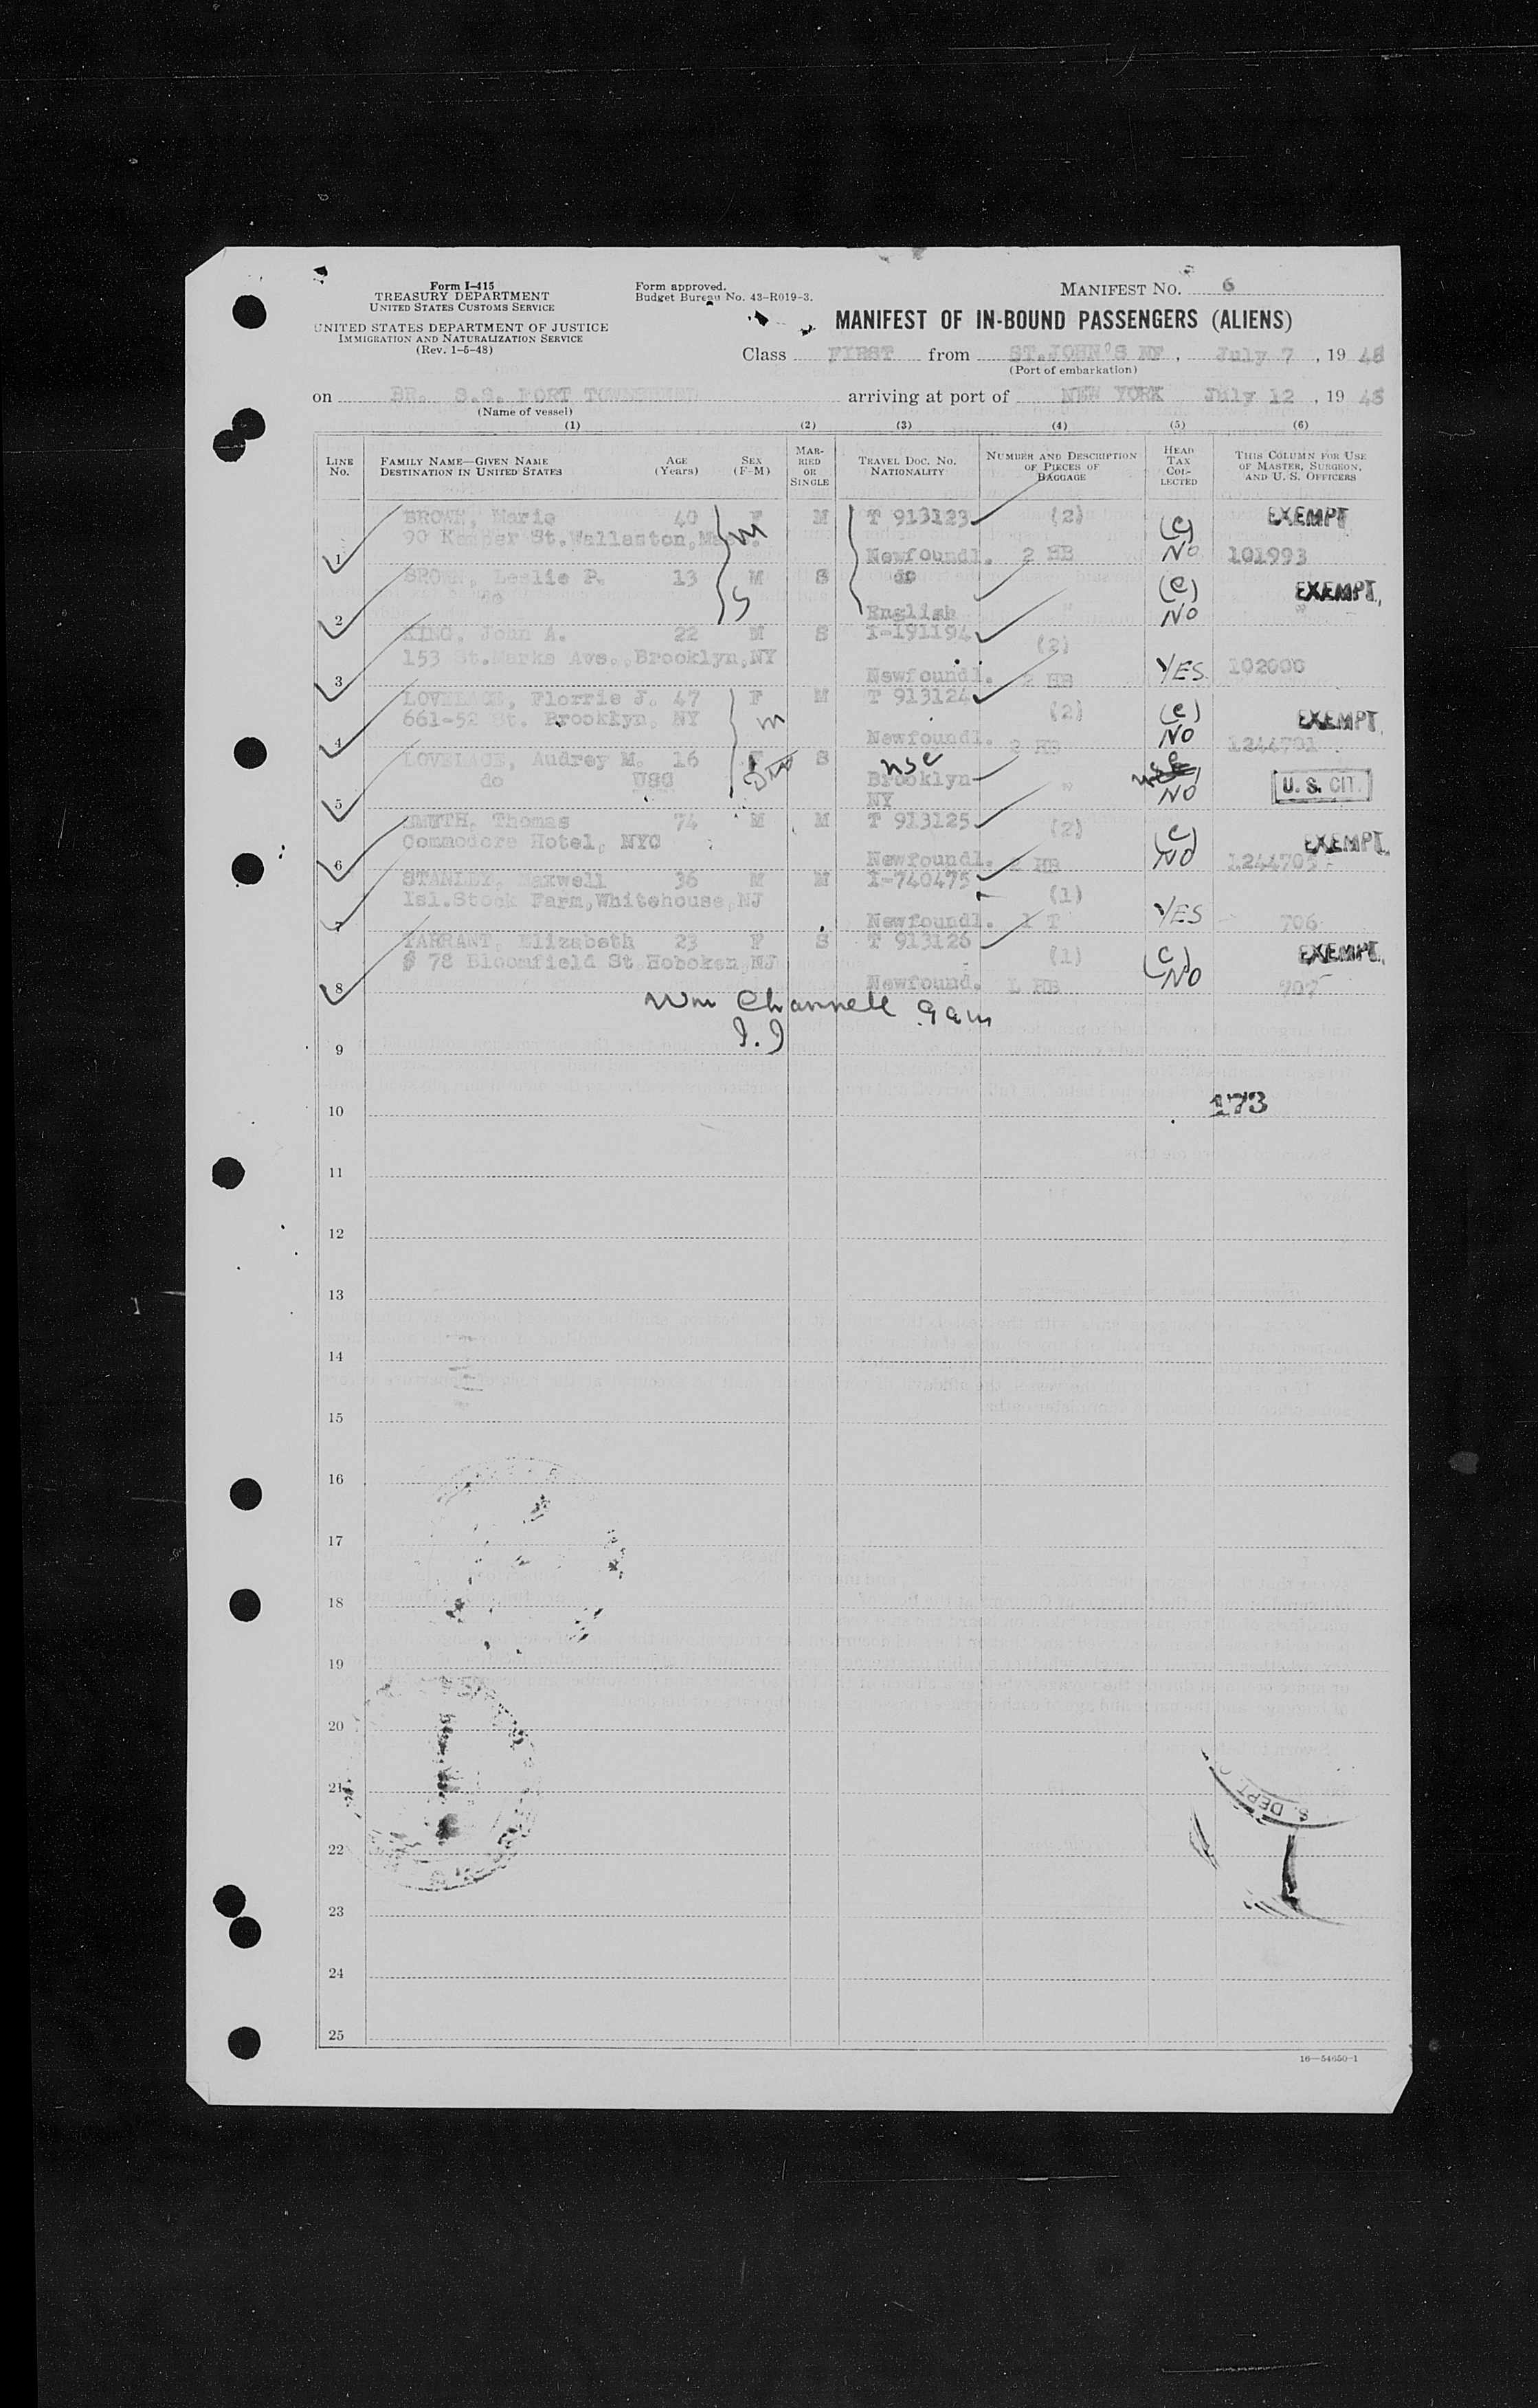 Form I-415
TREASURY DEPARTMENT
UNITED STATES CUSTOMS SERVICE
UNITED STATES DEPARTMENT OF JUSTICE
IMMIGRATION AND NATURALIZATION SERVICE
(Rev. 1-5-48)
Form approved.
Budget Bureau No. 43-R019-3.
MANIFEST NO. 6
MANIFEST OF IN-BOUND PASSENGERS (ALIENS)
Class FIRST from ST.JOHN'S NF, July 7, 19 48
(Port of embarkation)
on BR. S.S. FORT TOWNSHEND arriving at port of NEW YORK July 12, 19 48
(Name of vessel)
(1) (2) (3) (4) (5) (6)
LINE No. FAMILY NAME—GIVEN NAME DESTINATION IN UNITED STATES AGE (Years) SEX (F-M) MARRIED OR SINGLE TRAVEL DOC. NO. NATIONALITY NUMBER AND DESCRIPTION OF PIECES OF BAGGAGE HEAD TAX COLLECTED THIS COLUMN FOR USE OF MASTER, SURGEON, AND U. S. OFFICERS
BROWN, Marie 40 F M T 913123 (2) (e) EXEMPT
90 St.Wallaston,Mass. m
1 Newfoundl. 2 HB NO 101993
BROWN, Leslie P. 13 M S do (e) EXEMPT,
do S
2 English " NO "
KING, John A. 22 M S I-191194 (2)
153 St.Marks Ave.,Brooklyn,NY
3 Newfoundl. 2 HB YES 102000
LOVELACE, Florrie J. 47 F M T 913124 (2) (e) EXEMPT
661-52 St. Brookkyn, NY m
4 Newfoundl. 2 HB NO 1244701
LOVELACE, Audrey M. 16 F S nse
do USC Brooklyn " NO U. S. CIT.
5 NY
SMITH, Thomas 74 M M T 913125 (2) (e) EXEMPT.
Commodore Hotel, NYC
6 Newfoundl. 2 HB NO 1244705
STANLEY, Maxwell 36 M M I-740475 (1)
Isl.Stock Farm,Whitehouse,NJ
7 Newfoundl. 1 T YES 706
TARRANT, Elizabeth 23 F S T 913126 (1) (c) EXEMPT,
$ 78 Bloomfield St Hoboken NJ
8 Newfound. 1 HB NO 707
Wm Channell 9am
I.I
9
10 173
11
12
13
14
15
16
17
18
19
20
21
S. DEPT.
22
23
24
25
16—54650-1